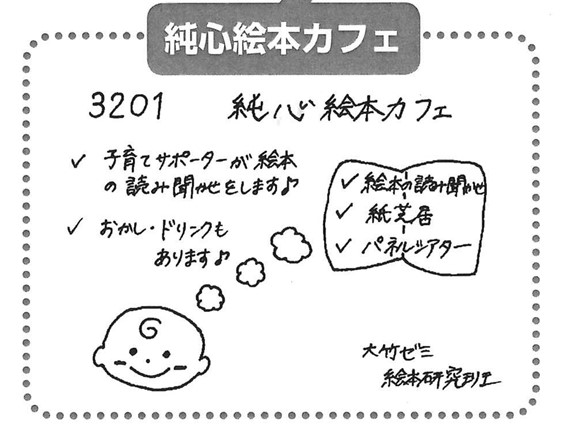 純心絵本カフェ
3201 純心絵本カフェ
✓ 子育てサポーターが絵本
の読み聞かせをします♪
✓ おかし・ドリンクも
あります♪
✓ 絵本の読み聞かせ
✓ 紙芝居
✓ パネルシアター
大竹ゼミ
絵本研究班